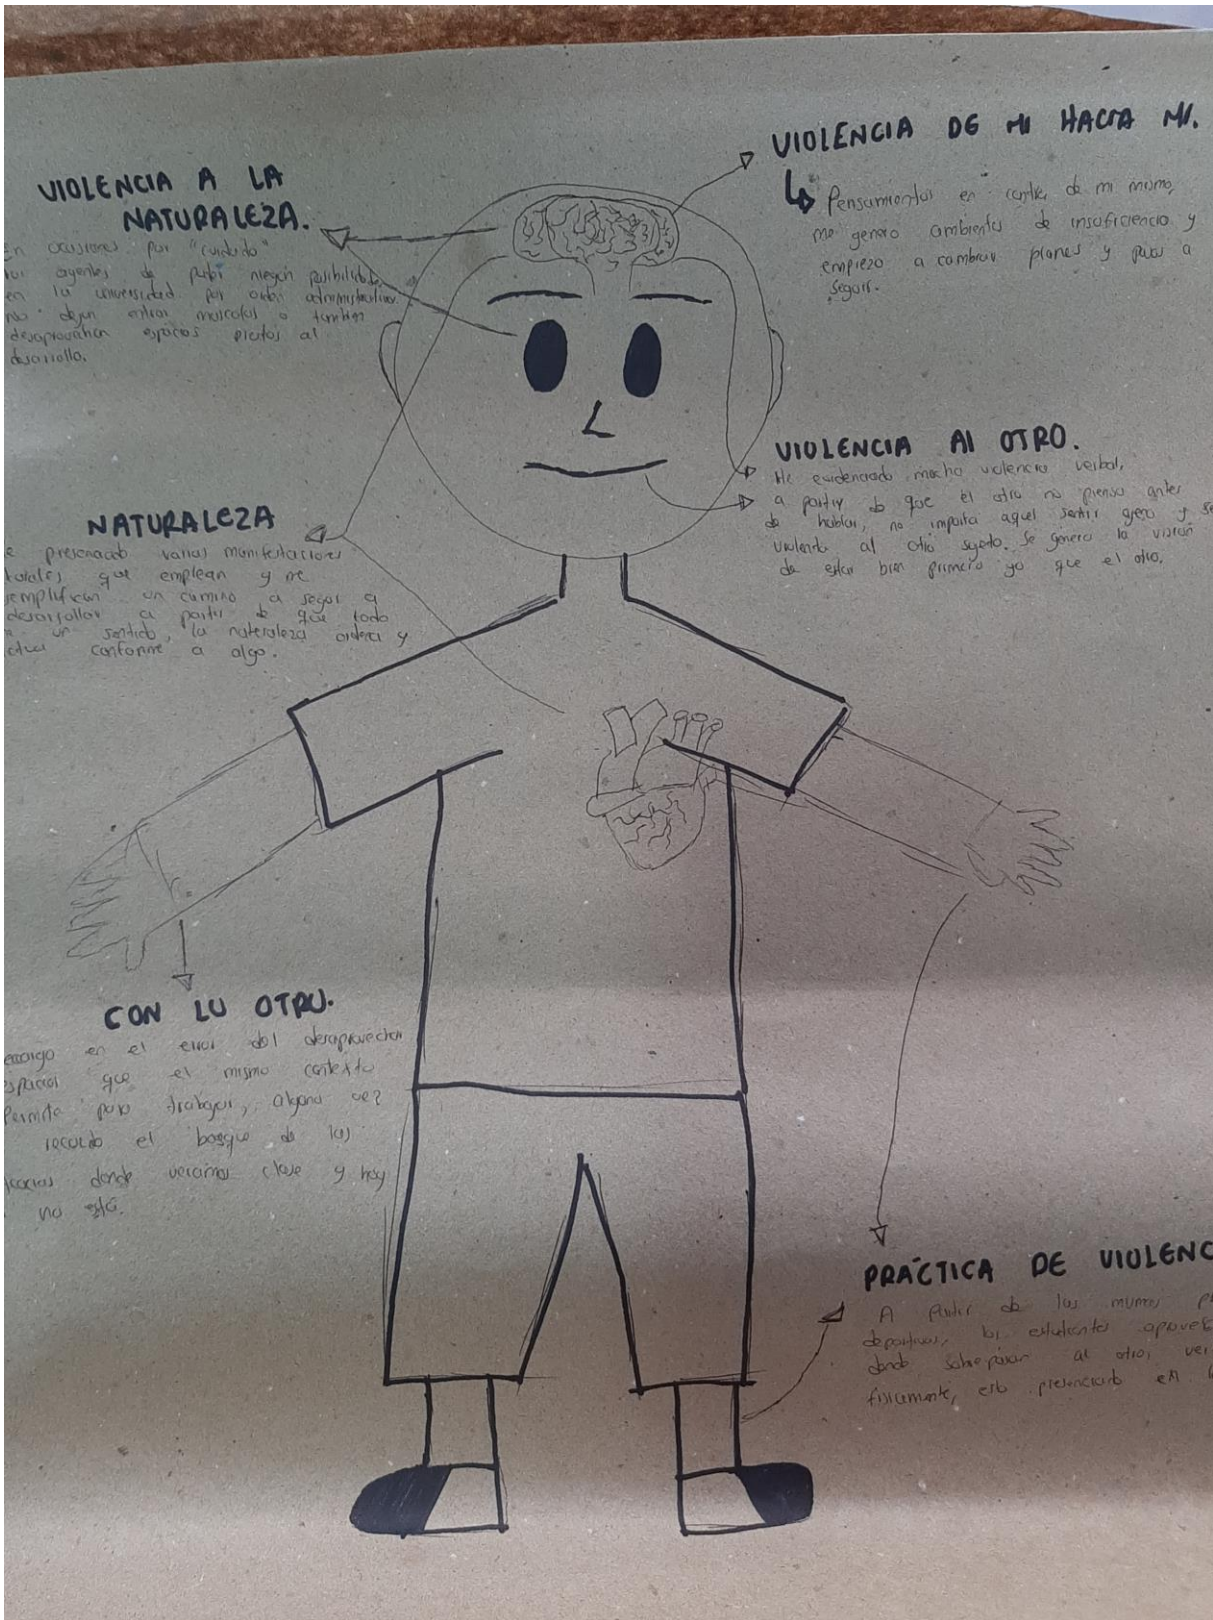 VIOLENCIA A LA
NATURALEZA.
En ocasiones por "cuidado"
agentes de niegan posibilidades
en la universidad por administrativo.
no dejan entrar mascotas o tambien
desaprovechan espacios al
desarrollo.
VIOLENCIA DE MI HACIA MI.
Pensamientos en contra de mi mismo,
me genero ambientes de insuficiencia y
empiezo a cambiar planes y pasos a
seguir.
VIOLENCIA Al OTRO.
He evidenciado mucha violencia verbal,
a partir de que el otro no piensa antes
de hablar, no importa aquel sentir y se
violenta al otro sujeto. Se genera la visión
de estar bien primero yo que el otro.
NATURALEZA
e presenciado varias manifestaciones
que emplean y me
emplifican un camino a seguir a
desarrollar a partir de que todo
un sentido, la naturaleza ordena y
conforme a algo.
CON LU OTRU.
en el error del desaprovechar
que el mismo contexto
permite para trabajar, alguna vez
recuerdo el bosque de las
donde veiamos clase y hoy
no está.
PRÁCTICA DE VIOLENC
A partir de las mismas
deportivas, los estudiantes
donde sobrepasan al otro,
fisicamente, esto presenciado en